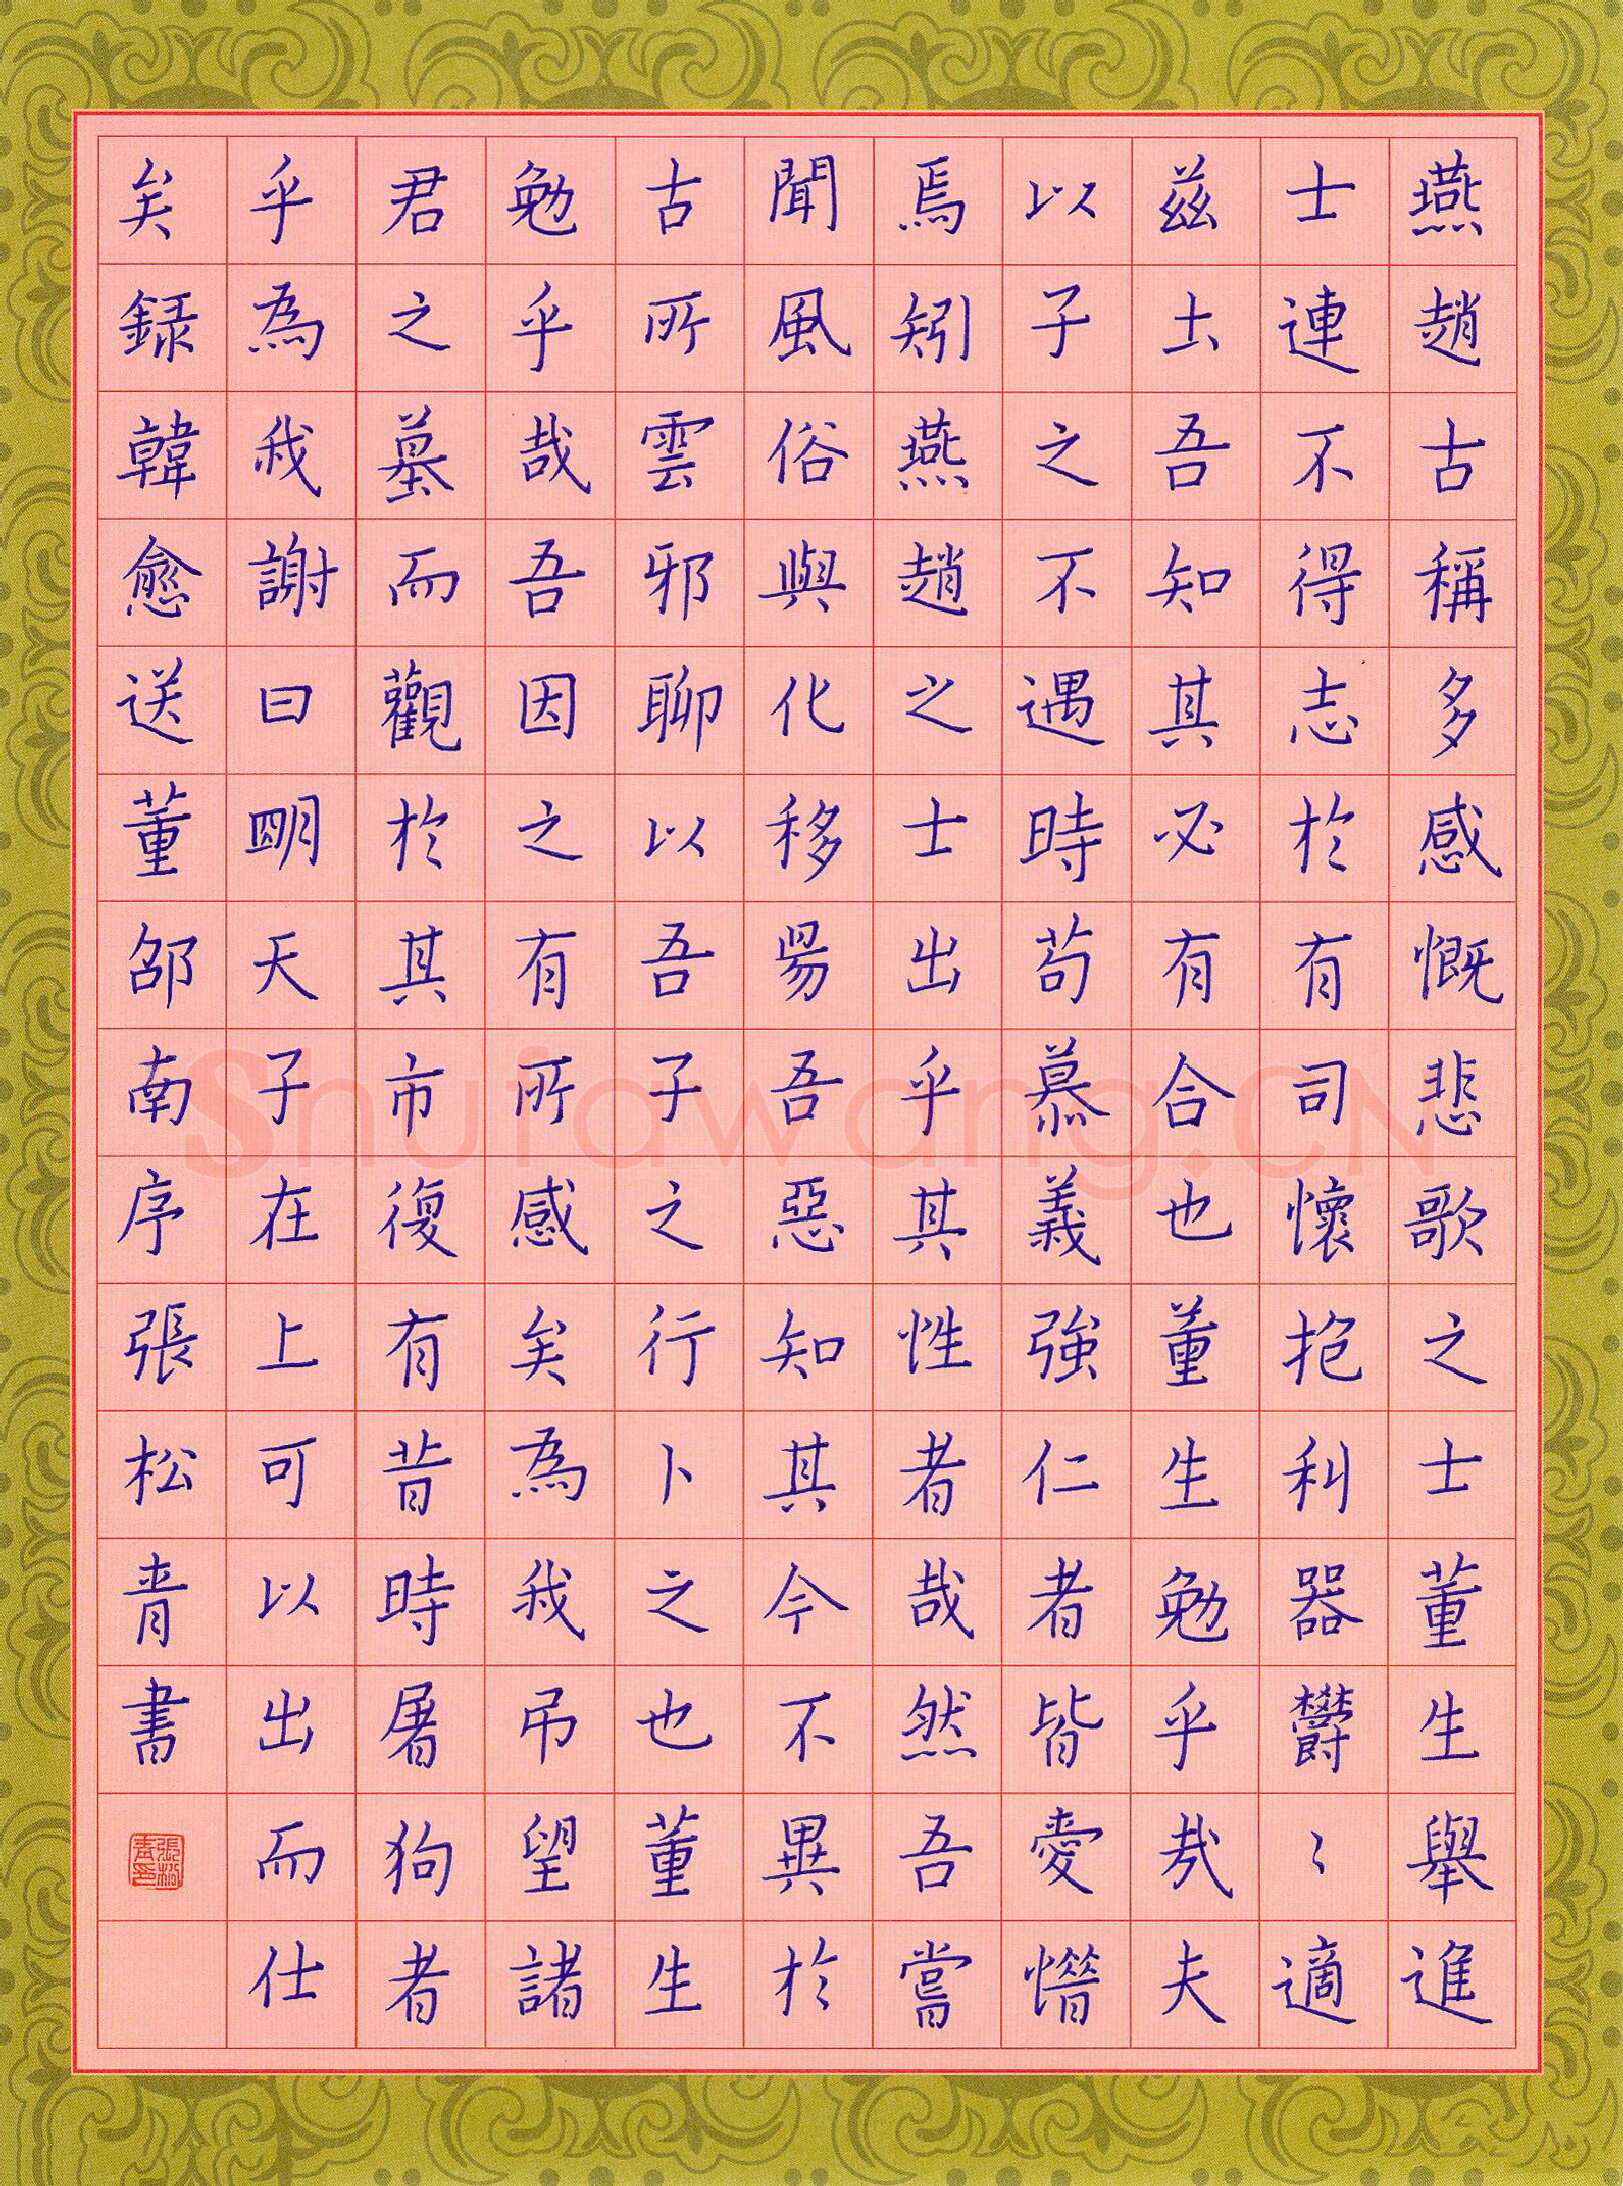 燕趙古稱多感慨悲歌之士董生舉進
士連不得志於有司懷抱利器鬱〻適
茲土吾知其必有合也董生勉乎哉夫
以子之不遇時苟慕義強仁者皆愛惜
焉矧燕趙之士出乎其性者哉然吾嘗
聞風俗與化移易吾惡知其今不異於
古所雲邪聊以吾子之行卜之也董生
勉乎哉吾因之有所感矣為我吊望諸
君之墓而觀於其市復有昔時屠狗者
乎為我謝曰明天子在上可以出而仕
矣録韓愈送董邵南序張松青書
張松青印
Shufawang.CN